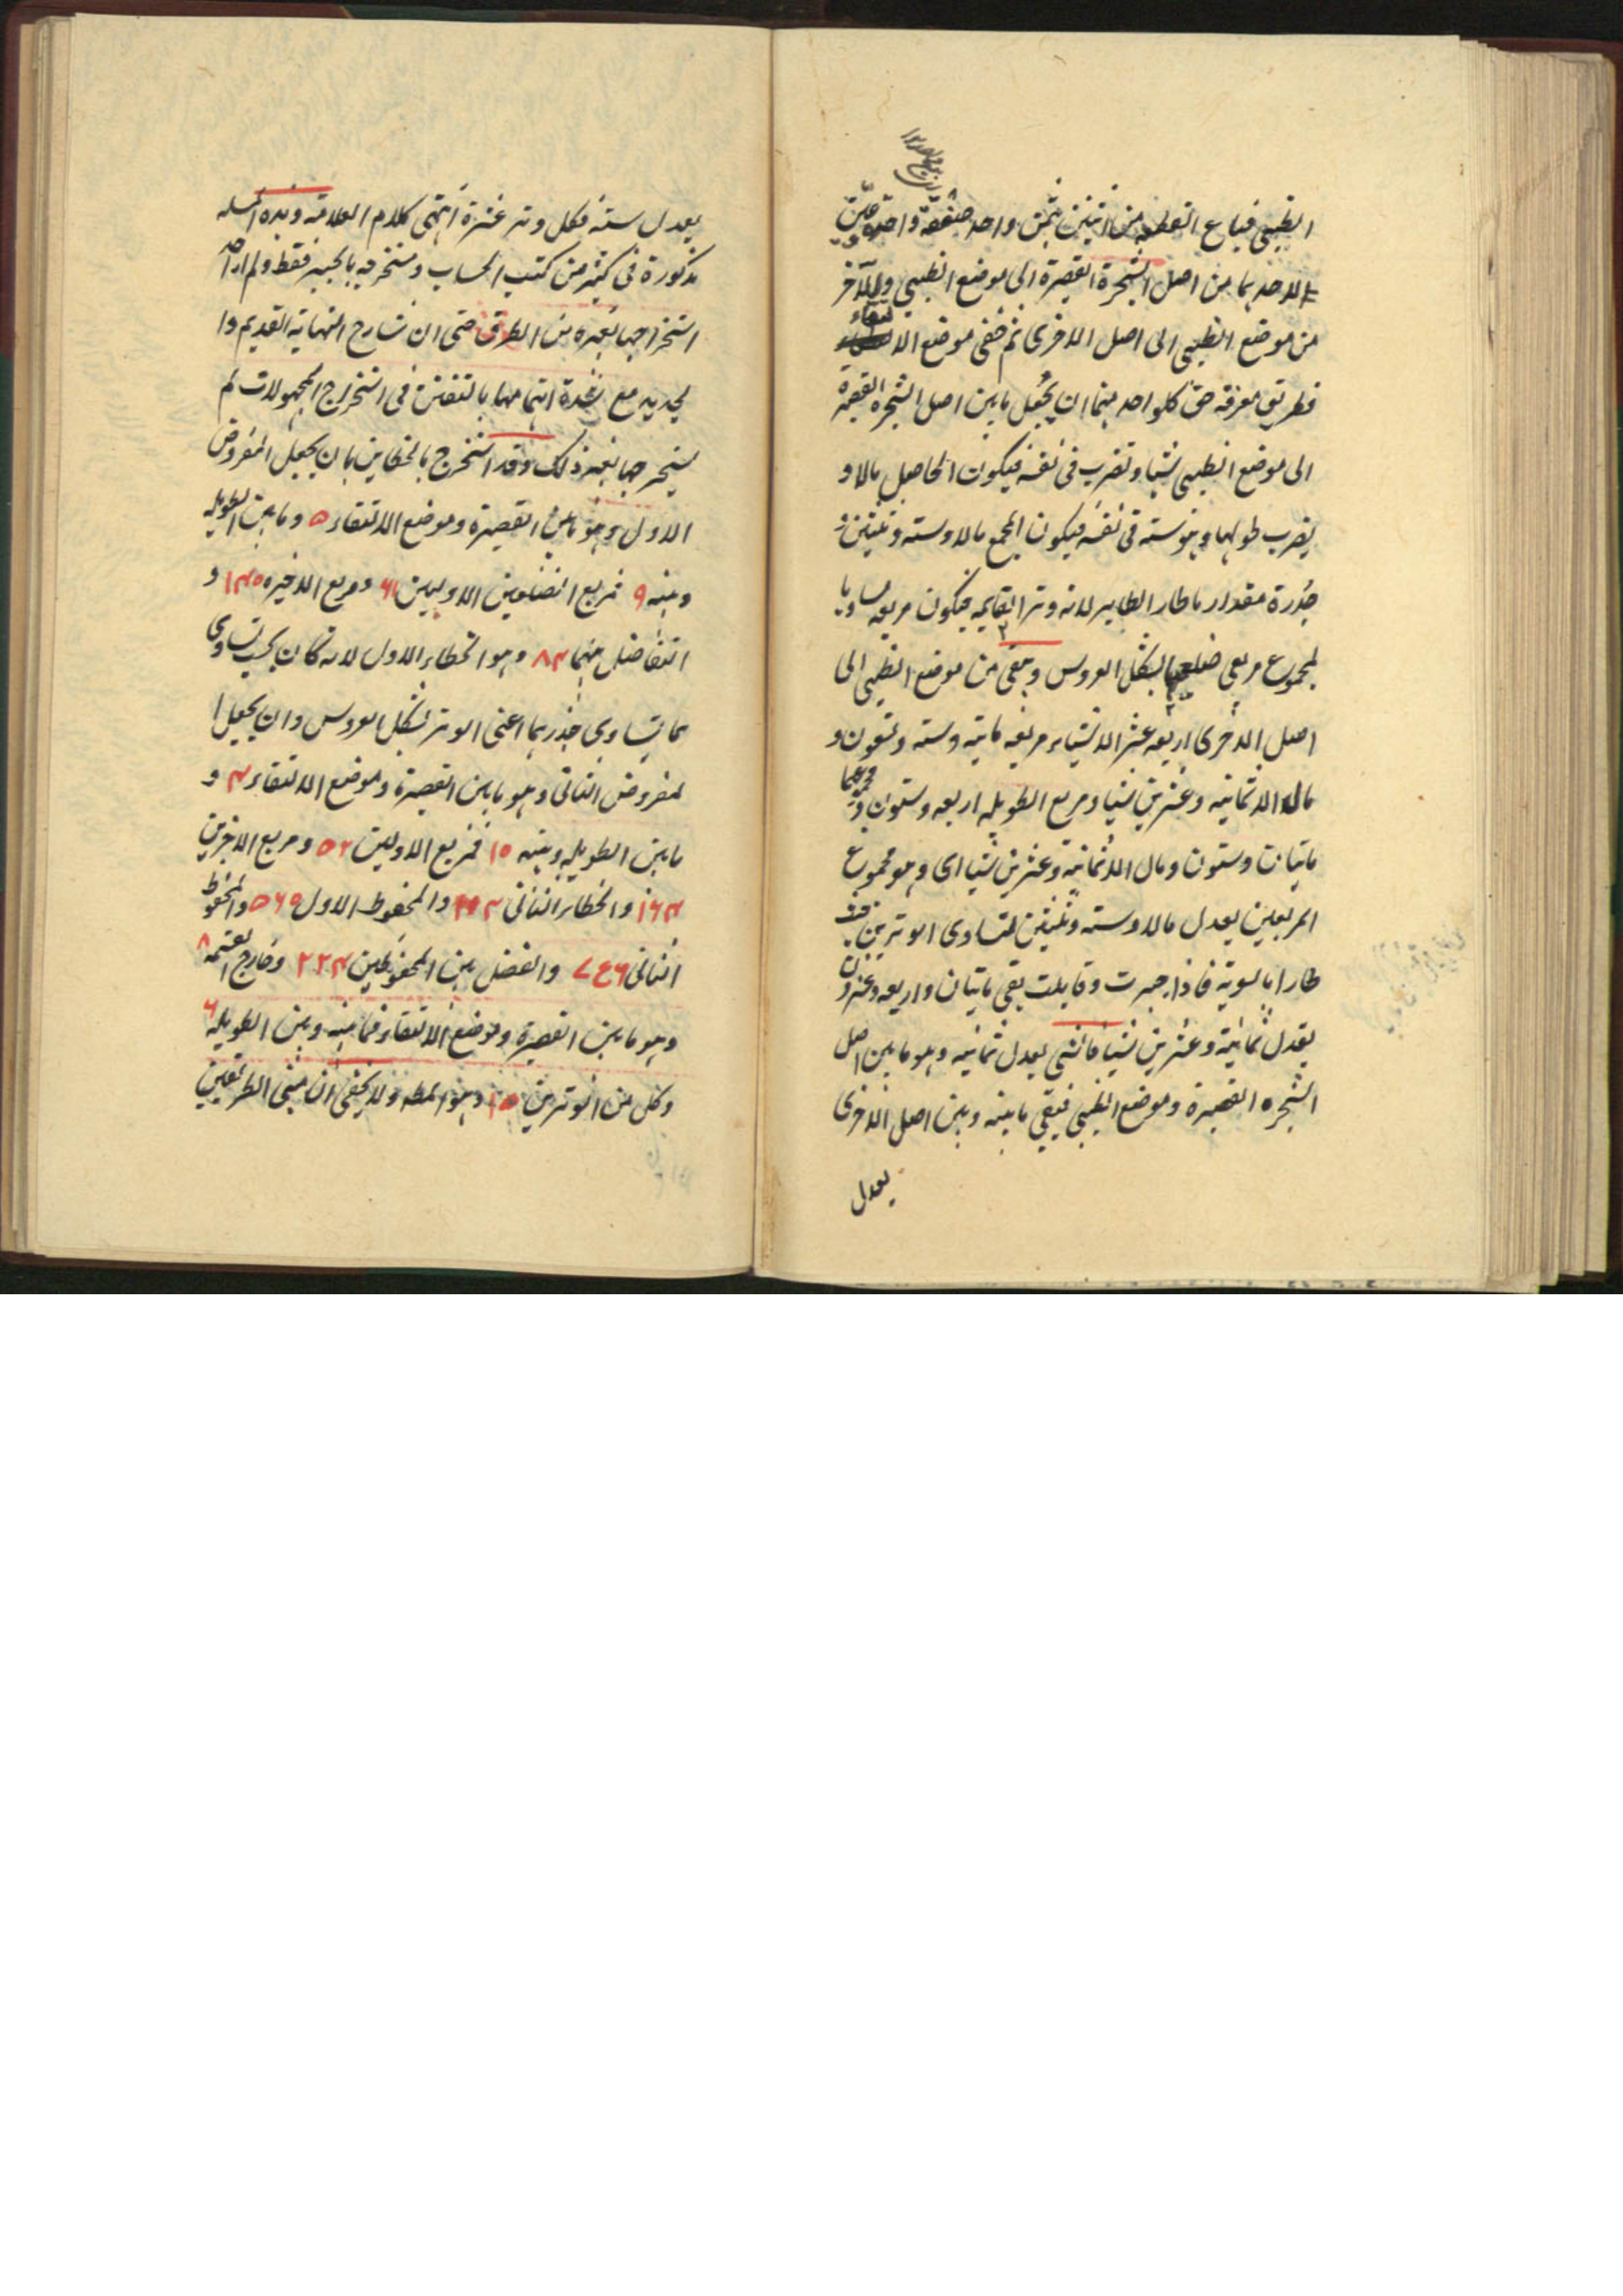 الظبي فباع القطعة من اثنين بثمن واحد صفقة واحدة على
ان لاحدهما من اصل الشجرة القصيرة الى موضع الظبي وللآخر
من موضع الظبي الى اصل الاخرى ثم خفى موضع الالتقاء
فطريق معرفة حق كلواحد منهما ان يجعل ما بين اصل الشجره القصيرة
الى موضع الظبي شيئا ونضرب فى نفسه فيكون الحاصل مالا و
يضرب طولها وهو ستة فى نفسه فيكون المجمع مالا وستة وثلثين
جذره مقدار ما طار الطاير لانه وتر القايمه فيكون مربعه مساويا
لمجموع مربعى ضلعيها بشكل العروس ويبقى من موضع الظبي الى
اصل الاخرى اربعه عشر الا شيئا مربعه مائه وسته وتسعون و
مال الا ثمانيه وعشرين شيئا ومربع الطويله اربعه وستون ومجموعهما
مايتان وستون ومال الا ثمانية وعشرين شيئا اى وهو مجموع
المربعين يعدل مالا وسته وثلثين لتساوى الوترين
طارا بالسوية فاذا جبرت وقابلت بقى مايتان واربعه وعشرون
يعدل ثمانية وعشرين شيئا فالشي يعدل ثمانيه وهو ما بين اصل
الشجره القصيرة وموضع الظبي فيبقى ما بينه وبين اصل الاخرى
يعدل
يعدل ستة فكل وتر عشرة انتهى كلام العلامه وهذه المسله
مذكورة فى كثير من كتب الحساب ومستخرجه بالجبر فقط ولم ار احد
استخراجها بغيره من الطرق حتى ان شارح النهاية القديم وا
لجديد مع شدة اهتمامهما بالتفنن فى استخراج المجهولات لم
يستخرجها بغير ذلك وقد استخرج بالخطاين بان يجعل المفروض
الاول وهو ما بين القصيرة وموضع الالتقاء ۵ وما بين الطويله
وبينه ۹ فمربع الضلعين الاوليين ۶۱ ومربع الاخيره ۱۴۵ و
التفاضل بينهما ۸۴ وهو الخطاء الاول لانه كان يجب تساوى
هما لتساوى جذريهما اعنى الوتر بشكل العروس وان يجعل ا
لمفروض الثانى وهو ما بين القصيرة وموضع الالتقاء ۴ و
ما بين الطويله وبينه ۱۰ فمربع الاوليين ۵۲ ومربع الاخرين
۱۶۴ والخطاء الثانى والمحفوظ الاول ۵۶۰ والمحفوظ
الثانى والفضل بين المحفوظين ۲۲۴ وخارج القسمه ۸
وهو ما بين القصيرة وموضع الالتقاء فما بينه وبين الطويله ۶
وكل من الوترين ۱۰ وهو المط ولا يخفى ان مبنى الطريقين